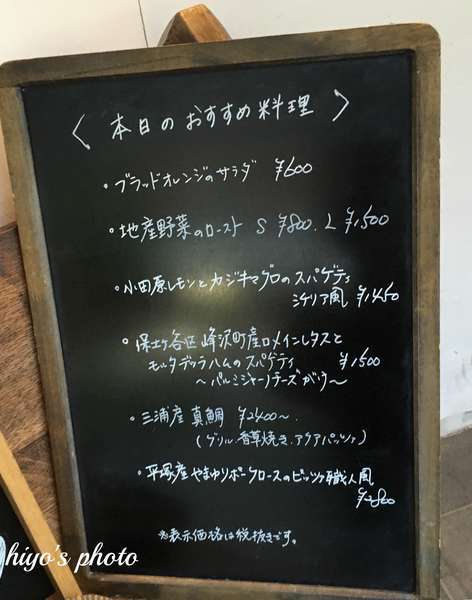 〈本日のおすすめ料理〉
・ブラッドオレンジのサラダ ¥600
・地産野菜のロースト S ¥800. L ¥1,500
・小田原レモンとカジキマグロのスパゲティ
シケリア風 ¥1450
・保土ヶ谷区峰沢町産ロメインレタスと
モルタデッラハムのスパゲティ ¥1500
〜パルミジャーノチーズがけ〜
・三浦産 真鯛 ¥2400〜.
(グリル・香草焼き・アクアパッツァ)
・平塚産やまゆりポークロースのピッツァ職人風
¥2800
※表示価格は税抜きです。
hiyo's photo